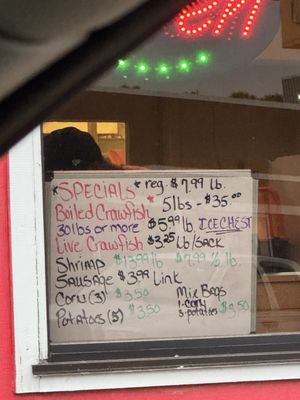 *SPECIALS* reg. $7.99 lb.
Boiled Crawfish * 5lbs - $35.00
30lbs or more $5.99 lb. ICE CHEST
Live Crawfish $3.25 lb/SACK
Shrimp $13.99 lb $7.99 ½ lb.
Sausage $3.99 Link
Corn (3) $3.50 Mix Bags
Potatoes (5) $3.50 1-corn $3.50
3-potatoes